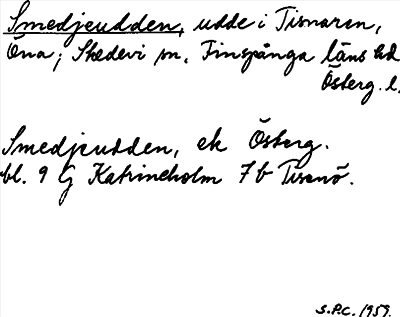 Smedjeudden, udde i Tisnaren,
Öna, Skedevi sn, Finspånga läns hd
Österg. l.
Smedjeudden, ek Österg.
bl. 9 G Katrineholm 7 b Tisenö.
S.P.C. 1959.